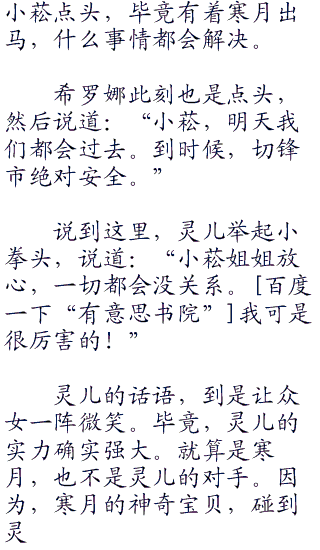 小菘点头，毕竟有着寒月出
马，什么事情都会解决。
希罗娜此刻也是点头，
然后说道：“小菘，明天我
们都会过去。到时候，切锋
市绝对安全。”
说到这里，灵儿举起小
拳头，说道：“小菘姐姐放
心，一切都会没关系。[百度
一下“有意思书院”]我可是
很厉害的！”
灵儿的话语，到是让众
女一阵微笑。毕竟，灵儿的
实力确实强大。就算是寒
月，也不是灵儿的对手。因
为，寒月的神奇宝贝，碰到
灵